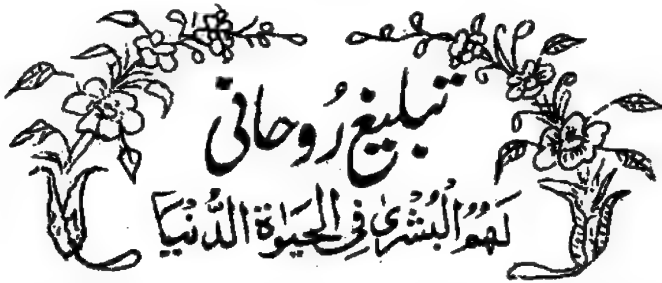 تبلیغ رُوحانی
لَهُمُ الْبُشْرٰی فِی الْحَیٰوةِ الدُّنْیَا